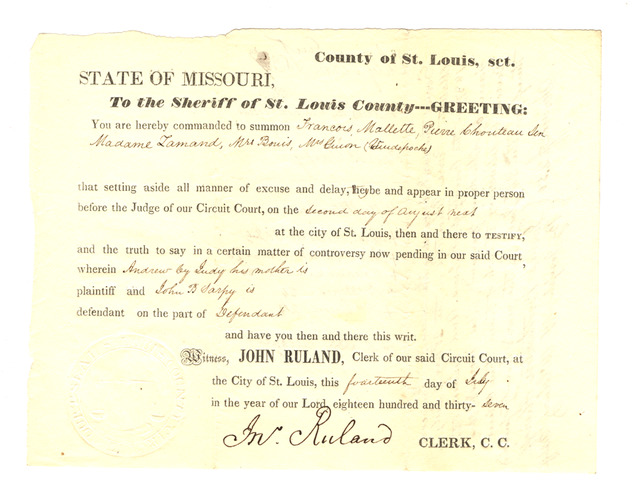 County of St. Louis, sct.
STATE OF MISSOURI,
To the Sheriff of St. Louis County---GREETING:
You are hereby commanded to summon Francois, Mallette, Pierre Chouteau Sen
Madame Lamand, Mrs Bouis, Mrs Guion
that setting aside all manner of excuse and delay, they be and appear in proper person
before the Judge of our Circuit Court, on the second day of August next
at the city of St. Louis, then and there to TESTIFY,
and the truth to say in a certain matter of controversy now pending in our said Court,
wherein Andrew by Judy his mother is
plaintiff and John B Sarpy is
defendant on the part of Defendant
and have you then and there this writ.
Witness, JOHN RULAND, Clerk of our said Circuit Court, at
the City of St. Louis, this fourteenth day of July
in the year of our Lord, eighteen hundred and thirty- seven
Jno. Ruland CLERK, C. C.